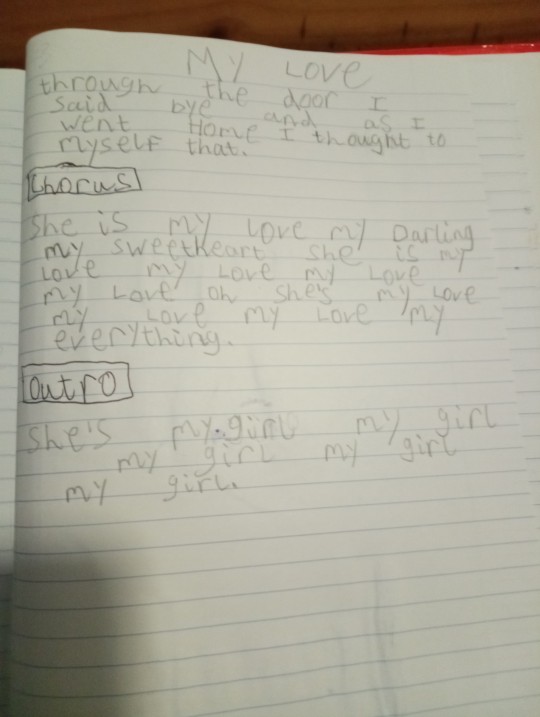 My Love
through the door I
said bye and as I
went Home I thought to
myself that.
Chorus
She is my love my Darling
my sweetheart she is my
love my love my love
my love oh she's my love
my love my love my
everything.
outro
She's my girl my girl
my girl my girl
my girl.